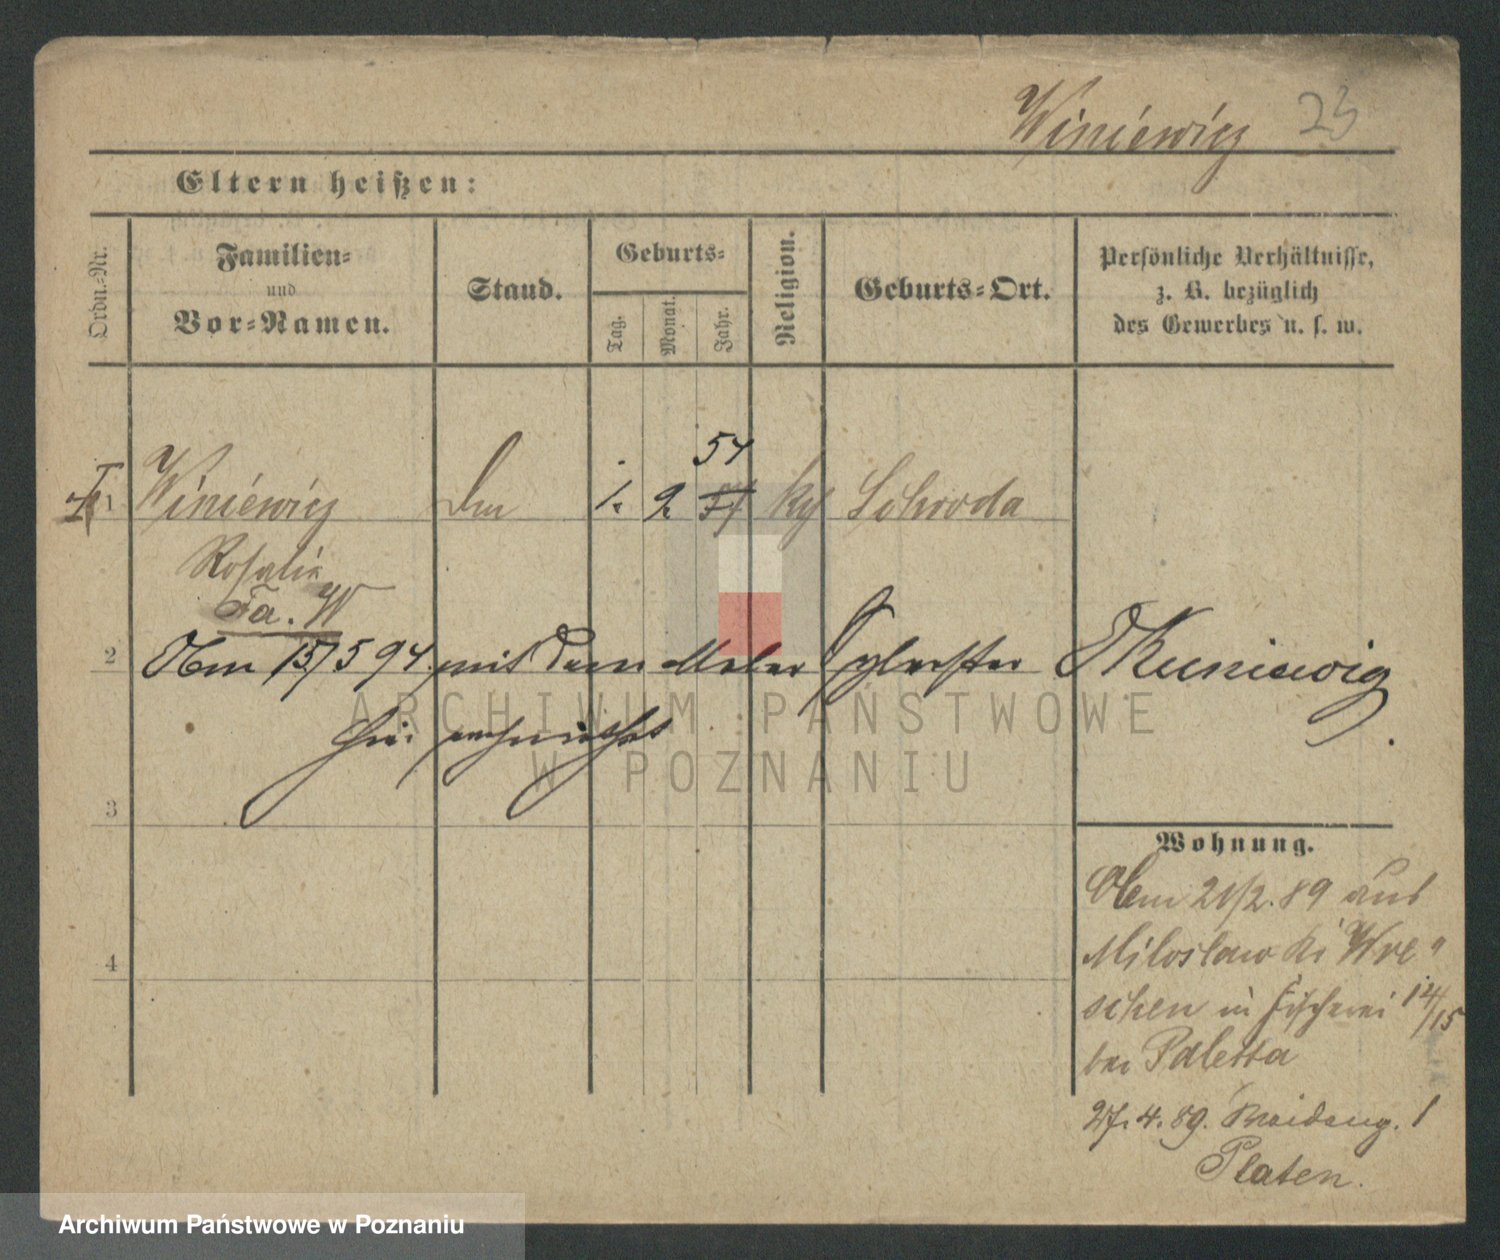 Winiewicz 23
Eltern heißen:
Ordn.-Nr.
Familien-
und
Vor-Namen.
Stand.
Geburts-
Tag.
Monat.
Jahr.
Religion.
Geburts-Ort.
Persönliche Verhältnisse,
z. B. bezüglich
des Gewerbes u. s. w.
54
1 Winiewicz 1. 2. Schroda
Rosalie
2 Am 15/5 94 mit dem Maler Sylvester
hier
3
Wohnung.
Am 21/2. 89 aus
Miloslaw Kr Wre
schen in Fischerei 14/15
bei Paletta
27. 4. 89. 1
Platen.
4
ARCHIWUM PAŃSTWOWE
W POZNANIU
Archiwum Państwowe w Poznaniu